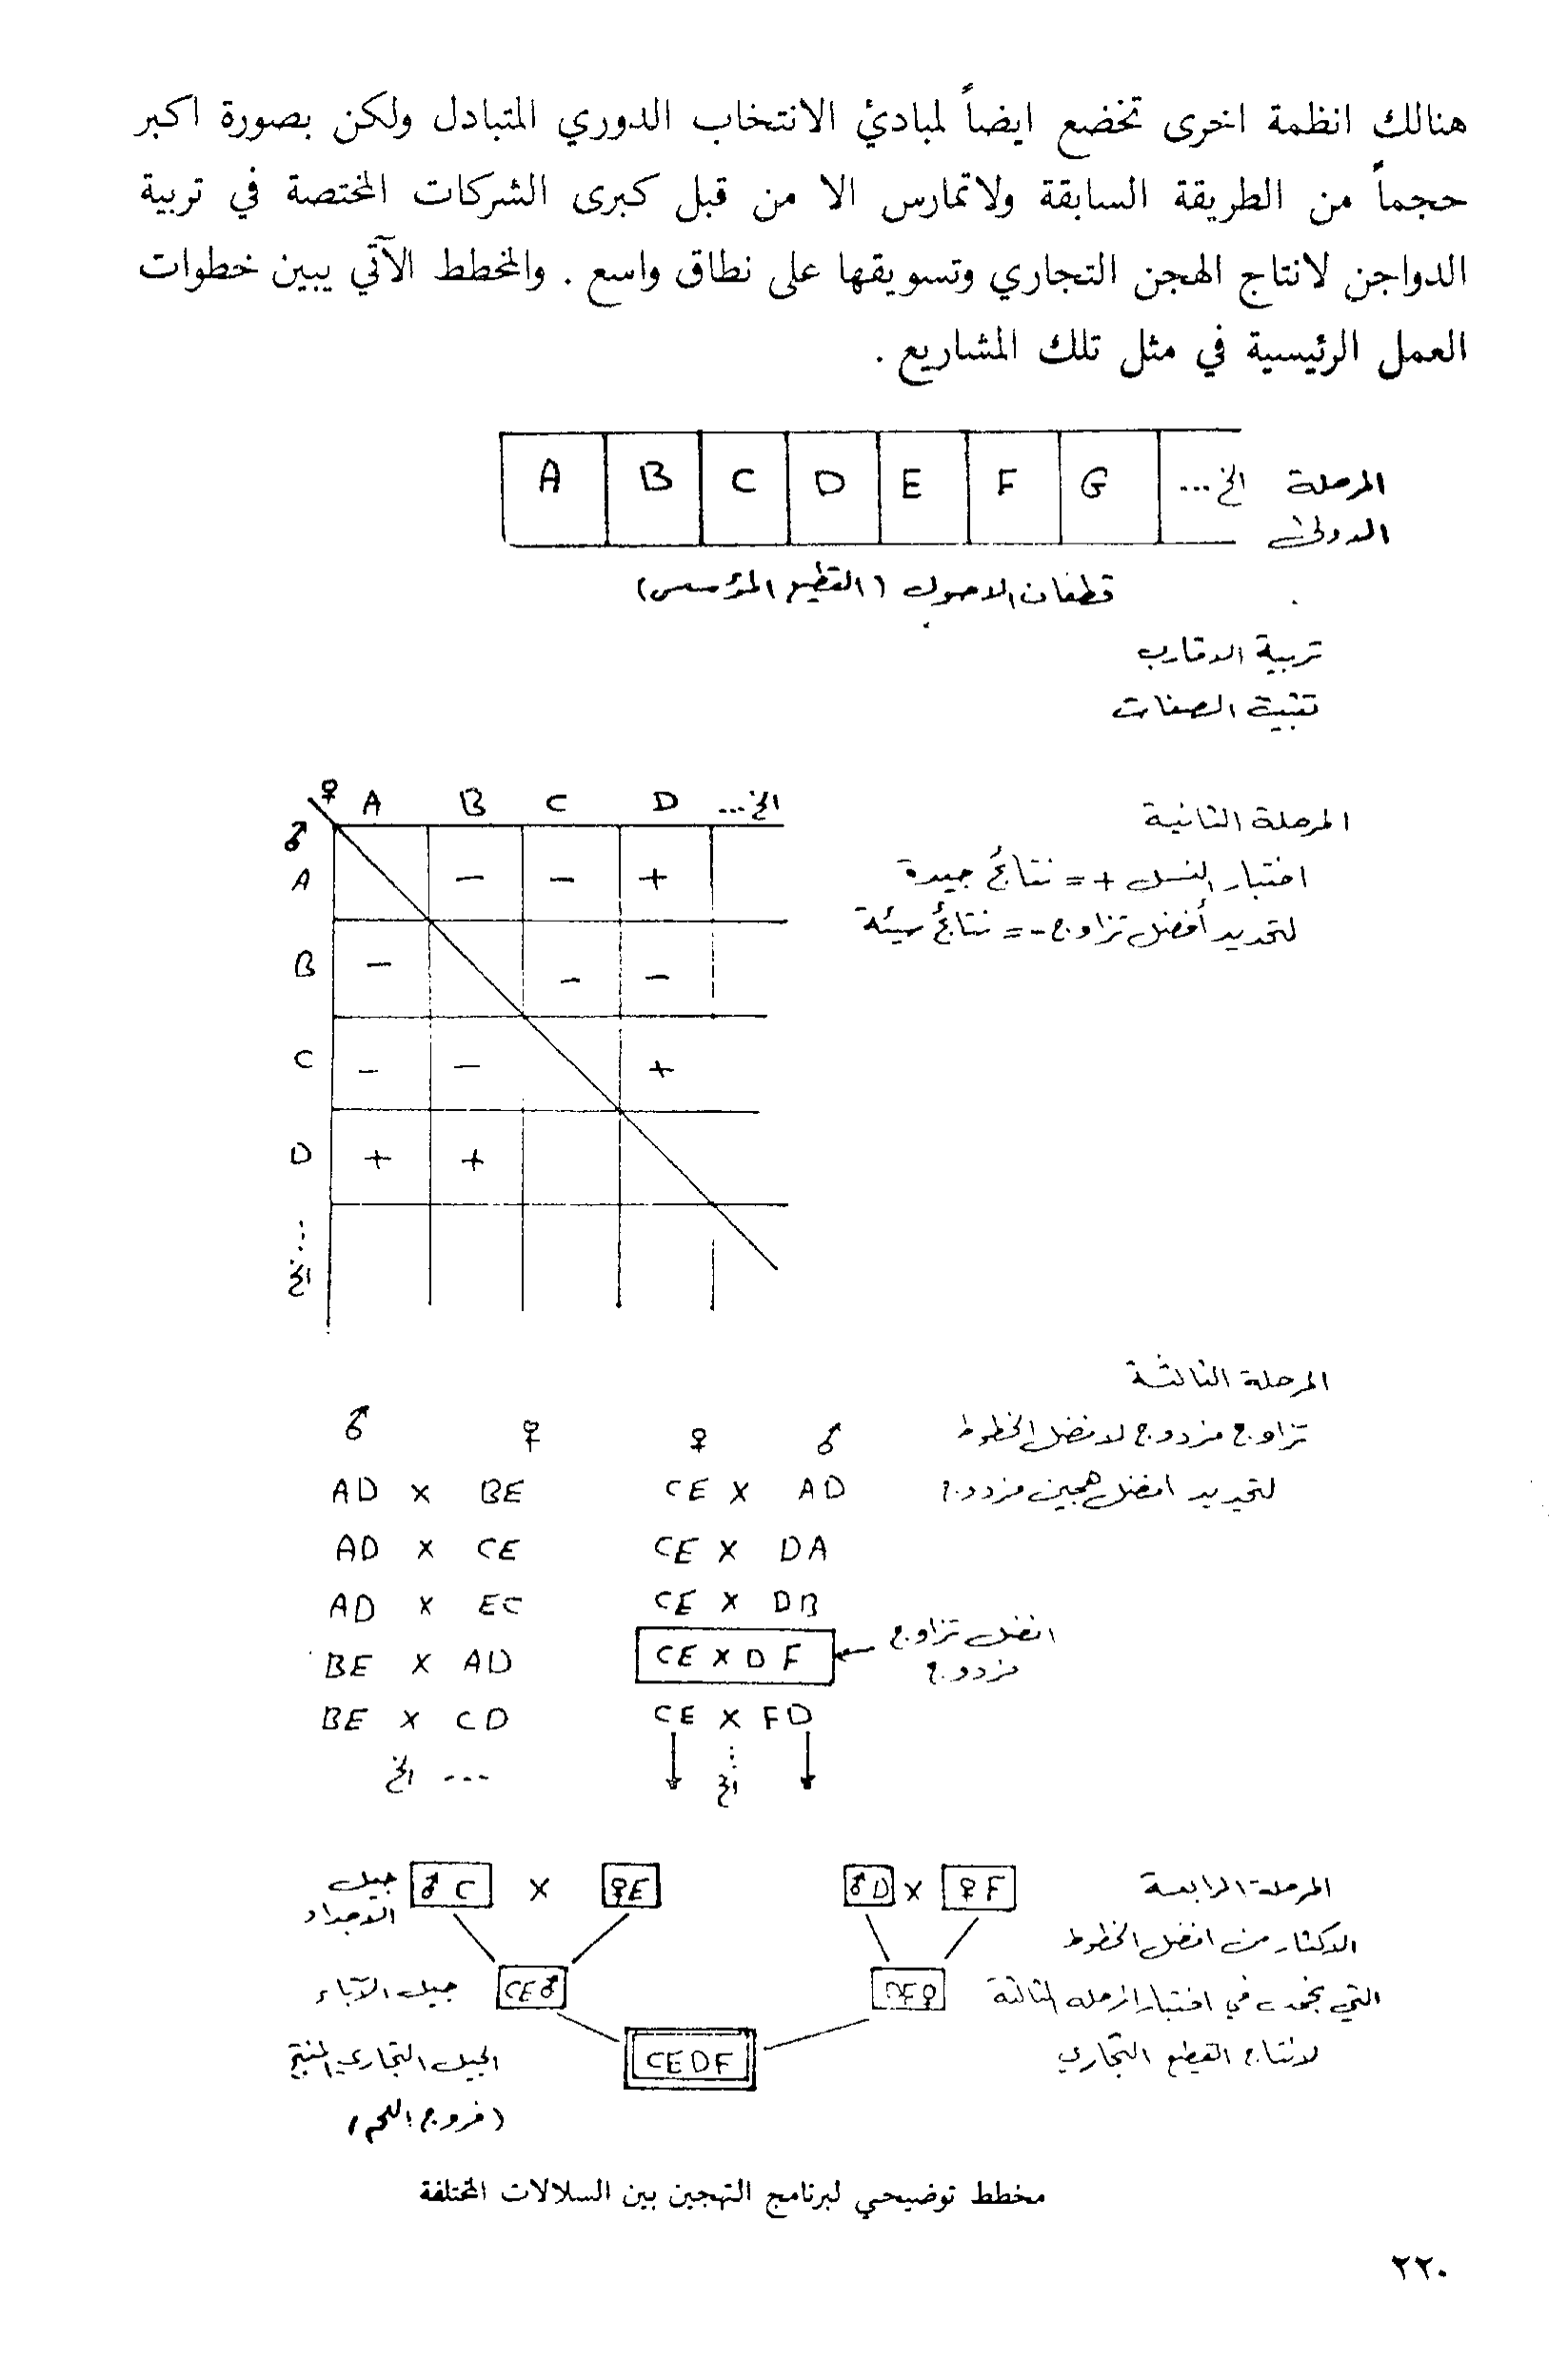 هنالك انظمة اخرى تخضع ايضاً لمبادئ الانتخاب الدوري المتبادل ولكن بصورة اكبر
حجماً من الطريقة السابقة ولاتمارس الا من قبل كبرى الشركات المختصة في تربية
الدواجن لانتاج الهجن التجاري وتسويقها على نطاق واسع . والمخطط الآتي يبين خطوات
العمل الرئيسية في مثل تلك المشاريع .
A B C D E F G ... الخ
المرحلة
الاولى
قطعان الاصول (القطيع المؤسس)
تربية الاقارب
تثبيت الصفات
المرحلة الثانية
اختبار النسل + = نتائج جيدة
لتحديد أفضل تزاوج - = نتائج سيئة
♀ A B C D ... الخ
♂
A − − +
B − − −
C − − +
D + +
... الخ
المرحلة الثالثة
تزاوج مزدوج لافضل الخطوط
لتحديد افضل هجين مزدوج
♂ ♀ ♀ ♂
AD x BE CE x AD
AD x CE CE x DA
AD x EC CE x DB
BE x AD CE x DF
افضل تزاوج
مزدوج
BE x CD CE x FD
... الخ ... الخ
المرحلة الرابعة
الاكثار من افضل الخطوط
التي نجحت في اختبار المرحلة الثالثة
لانتاج القطيع التجاري
♂ C x ♀E ♂D x ♀F
جيل
الاجداد
CE♂ DF♀
جيل الآباء
CEDF
الجيل التجاري المنتج
(فروج اللحم)
مخطط توضيحي لبرنامج التهجين بين السلالات المختلفة
٢٢٠